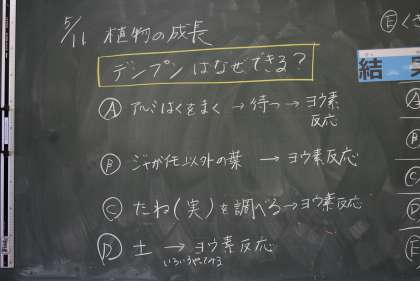 5/11 植物の成長
デンプンはなぜできる?
Ⓐ アルミはくをまく → 待つ → ヨウ素
反応
Ⓑ ジャガイモ以外の葉 → ヨウ素反応
Ⓒ たね(実)を調べる → ヨウ素反応
Ⓓ 土 → ヨウ素反応
Ⓔ く
結 実
Ⓐ
Ⓑ
Ⓒ
Ⓓ
Ⓔ